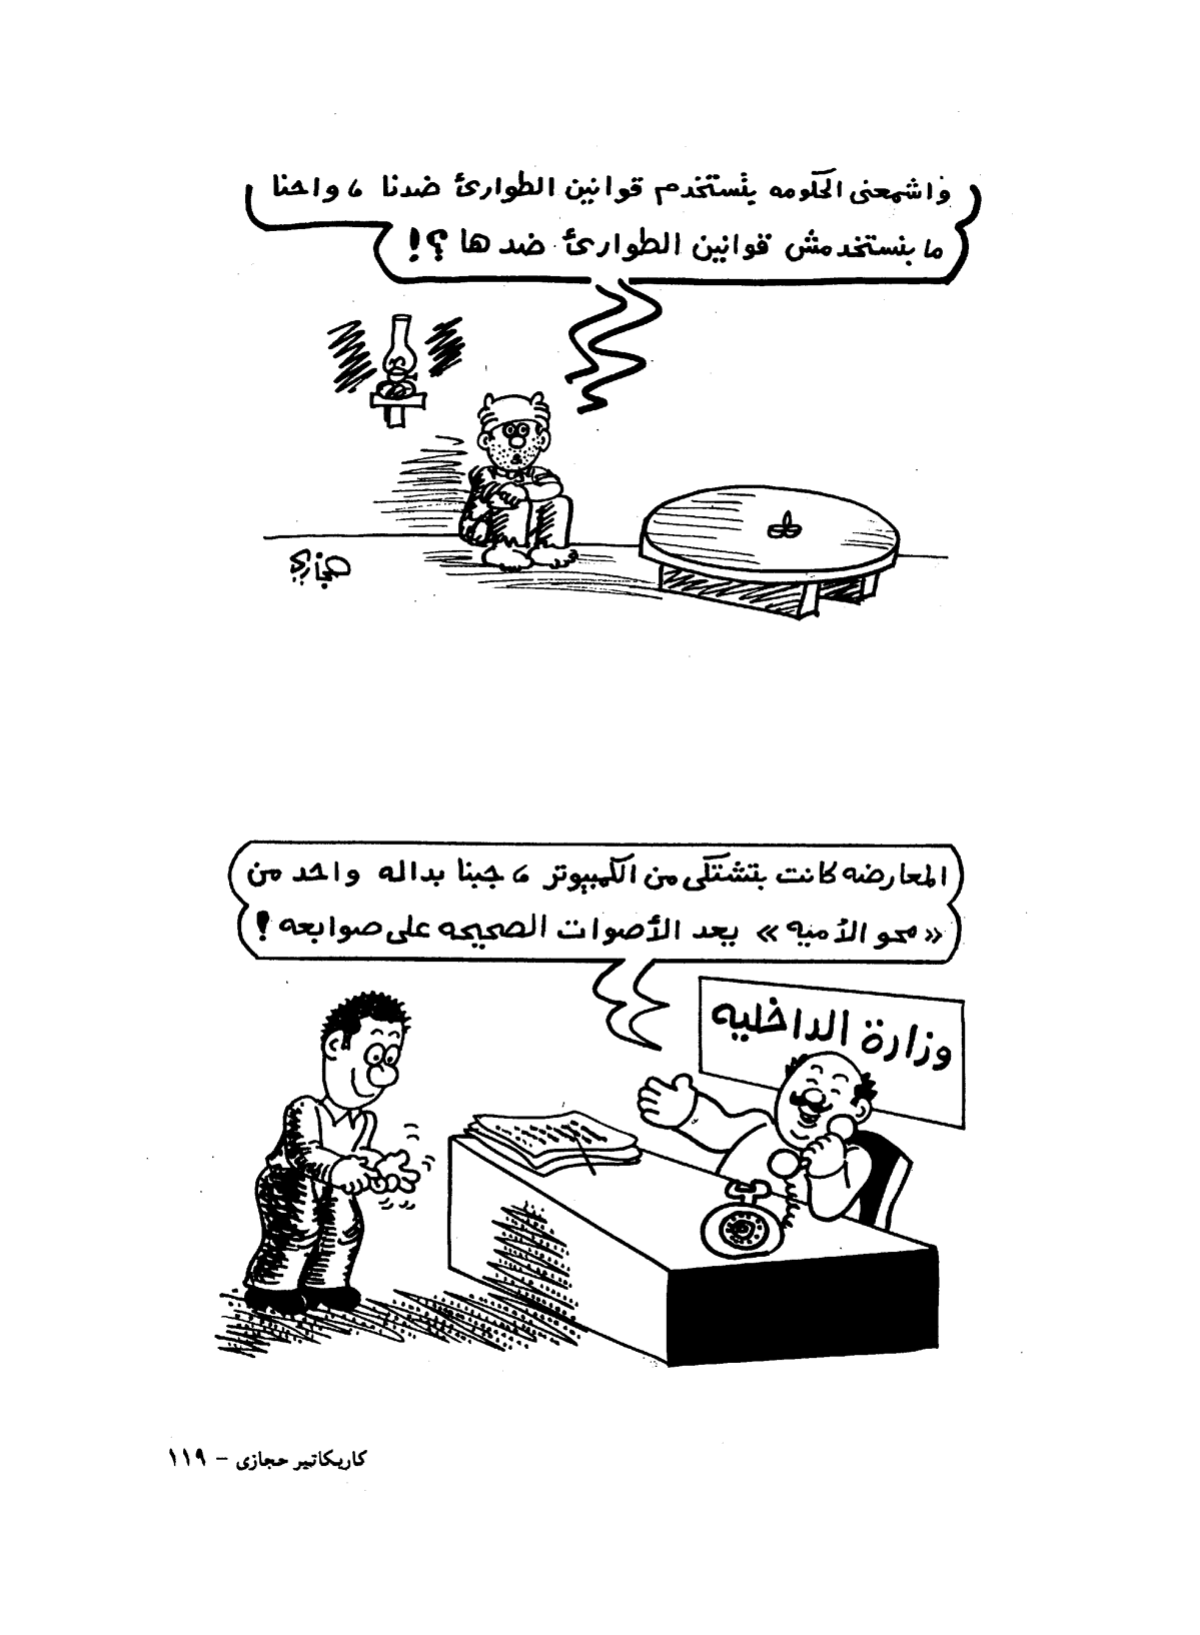 واشمعنى الحكومه بتستخدم قوانين الطوارئ ضدنا ، واحنا
ما بنستخدمش قوانين الطوارئ ضدها ؟!
حجازي
المعارضه كانت بتشتكى من الكمبيوتر ، جبنا بداله واحد من
« محو الأميه » يعد الأصوات الصحيحه على صوابعه !
وزارة الداخليه
كاريكاتير حجازى - ١١٩